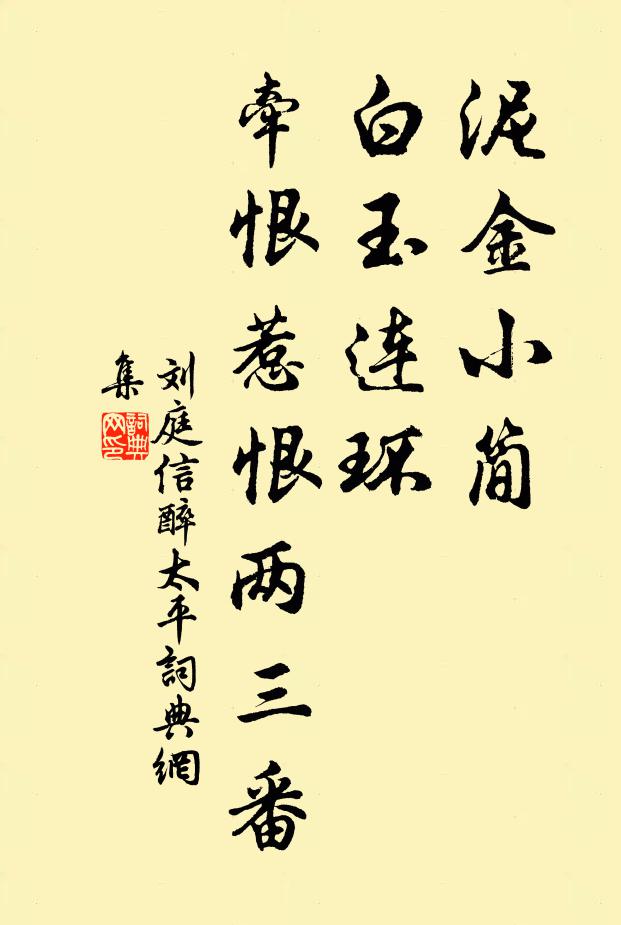 泥金小简
白玉连环
牵恨惹恨两三番
刘庭信醉太平詞典網
集
詞典
网印